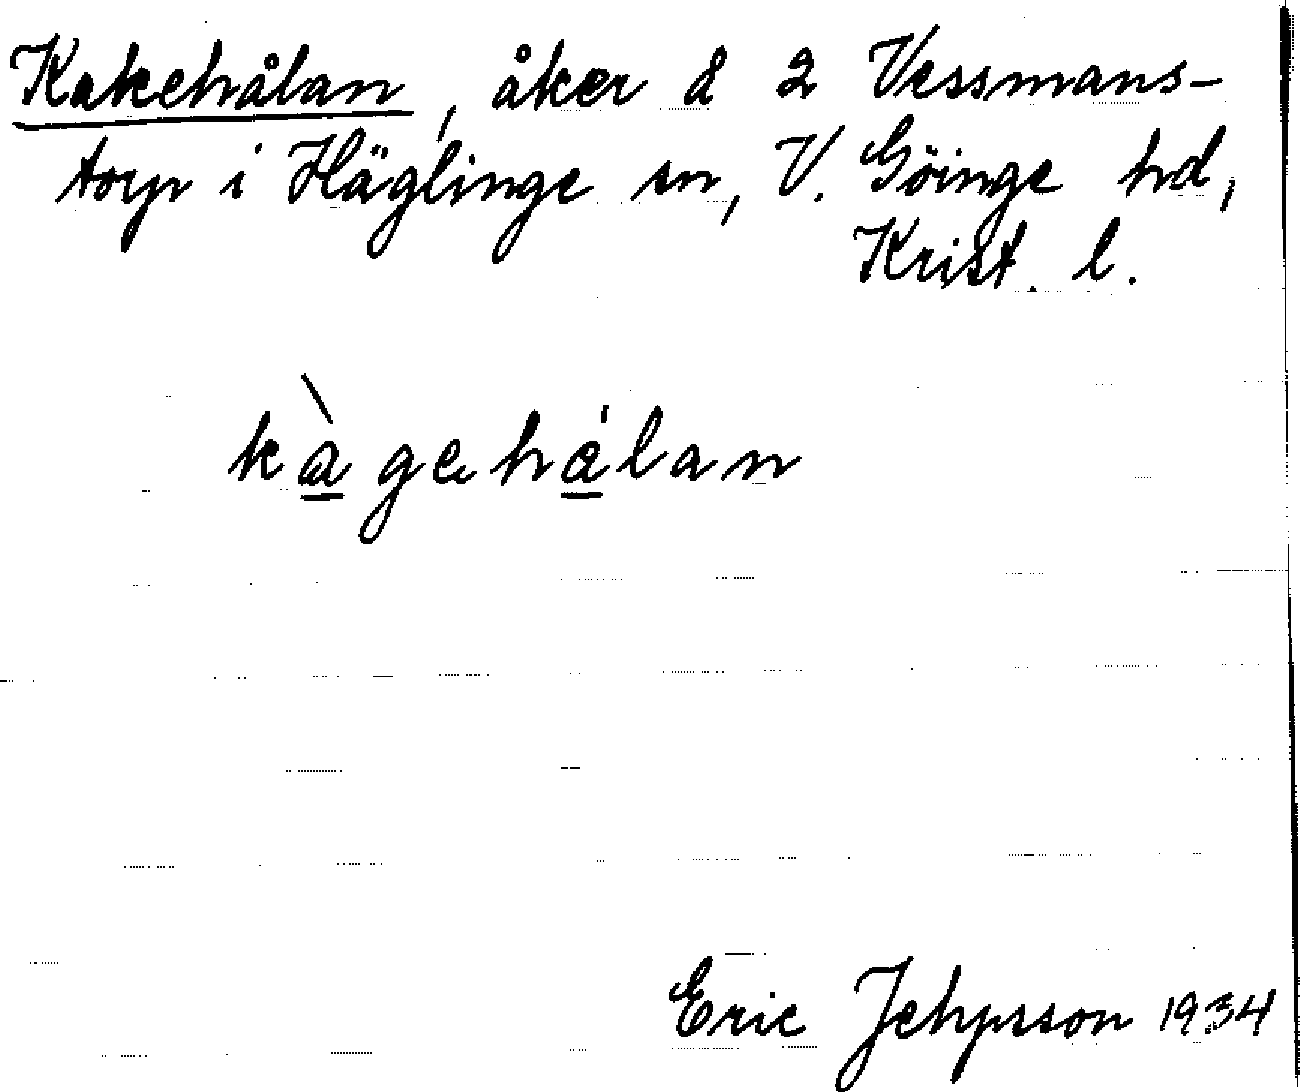 Kakehålan, åker å 2 Vessmans-
torp i Häglinge sn, V. Göinge hd,
Krist. l.
kàgehálan
Eric Jehpsson 1934